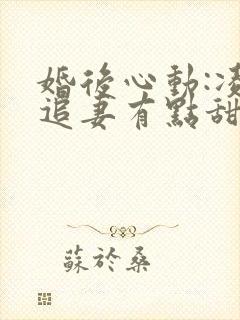 婚後心動:凌
追妻有點甜
蘇於桑